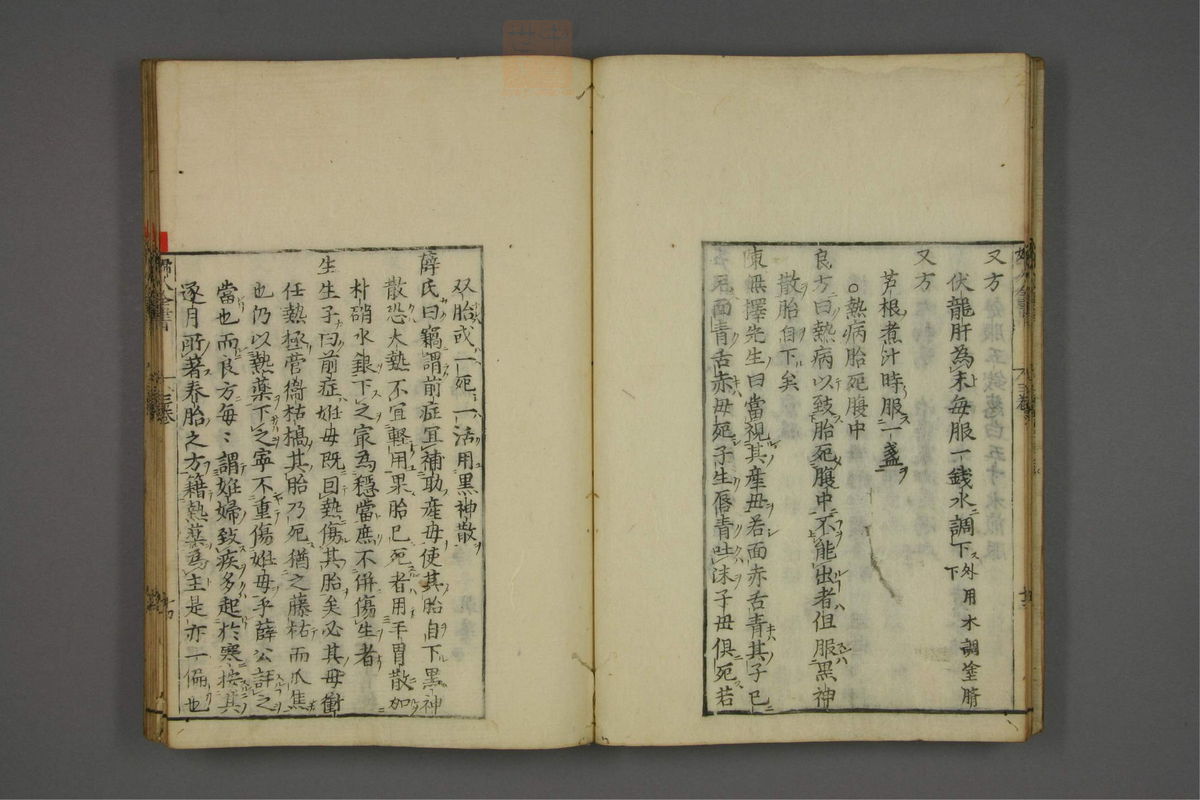 又方
伏龍肝為末毎服一錢水調下外用水調塗臍下
又方
芦根煮汁時服一盞
○熱病胎死腹中
良方曰熱病以致胎死腹中不能出者但服黒神
散胎自下矣
陳無擇先生曰當視其産母若面赤舌青其子已
死面青舌赤母死子生唇青吐沫子母俱死若
双胎或一死一活用黒神散
薛氏曰竊謂前症宜補助産母使其胎自下黒神
散恐大熱不宜輕用果胎已死者用平胃散加
朴硝水銀下之最為穩當庶不併傷生者
生生子曰前症姙母既回熱傷其胎矣必其母衝
任熱極营衞枯槁其胎乃死猶之藤枯而瓜焦
也仍以熱藥下之寧不重傷姙母乎薛公評之
當也而良方毎々謂姙婦致疾多起於寒按其
逐月所著养胎之方籍熱藥為主是亦一偏也